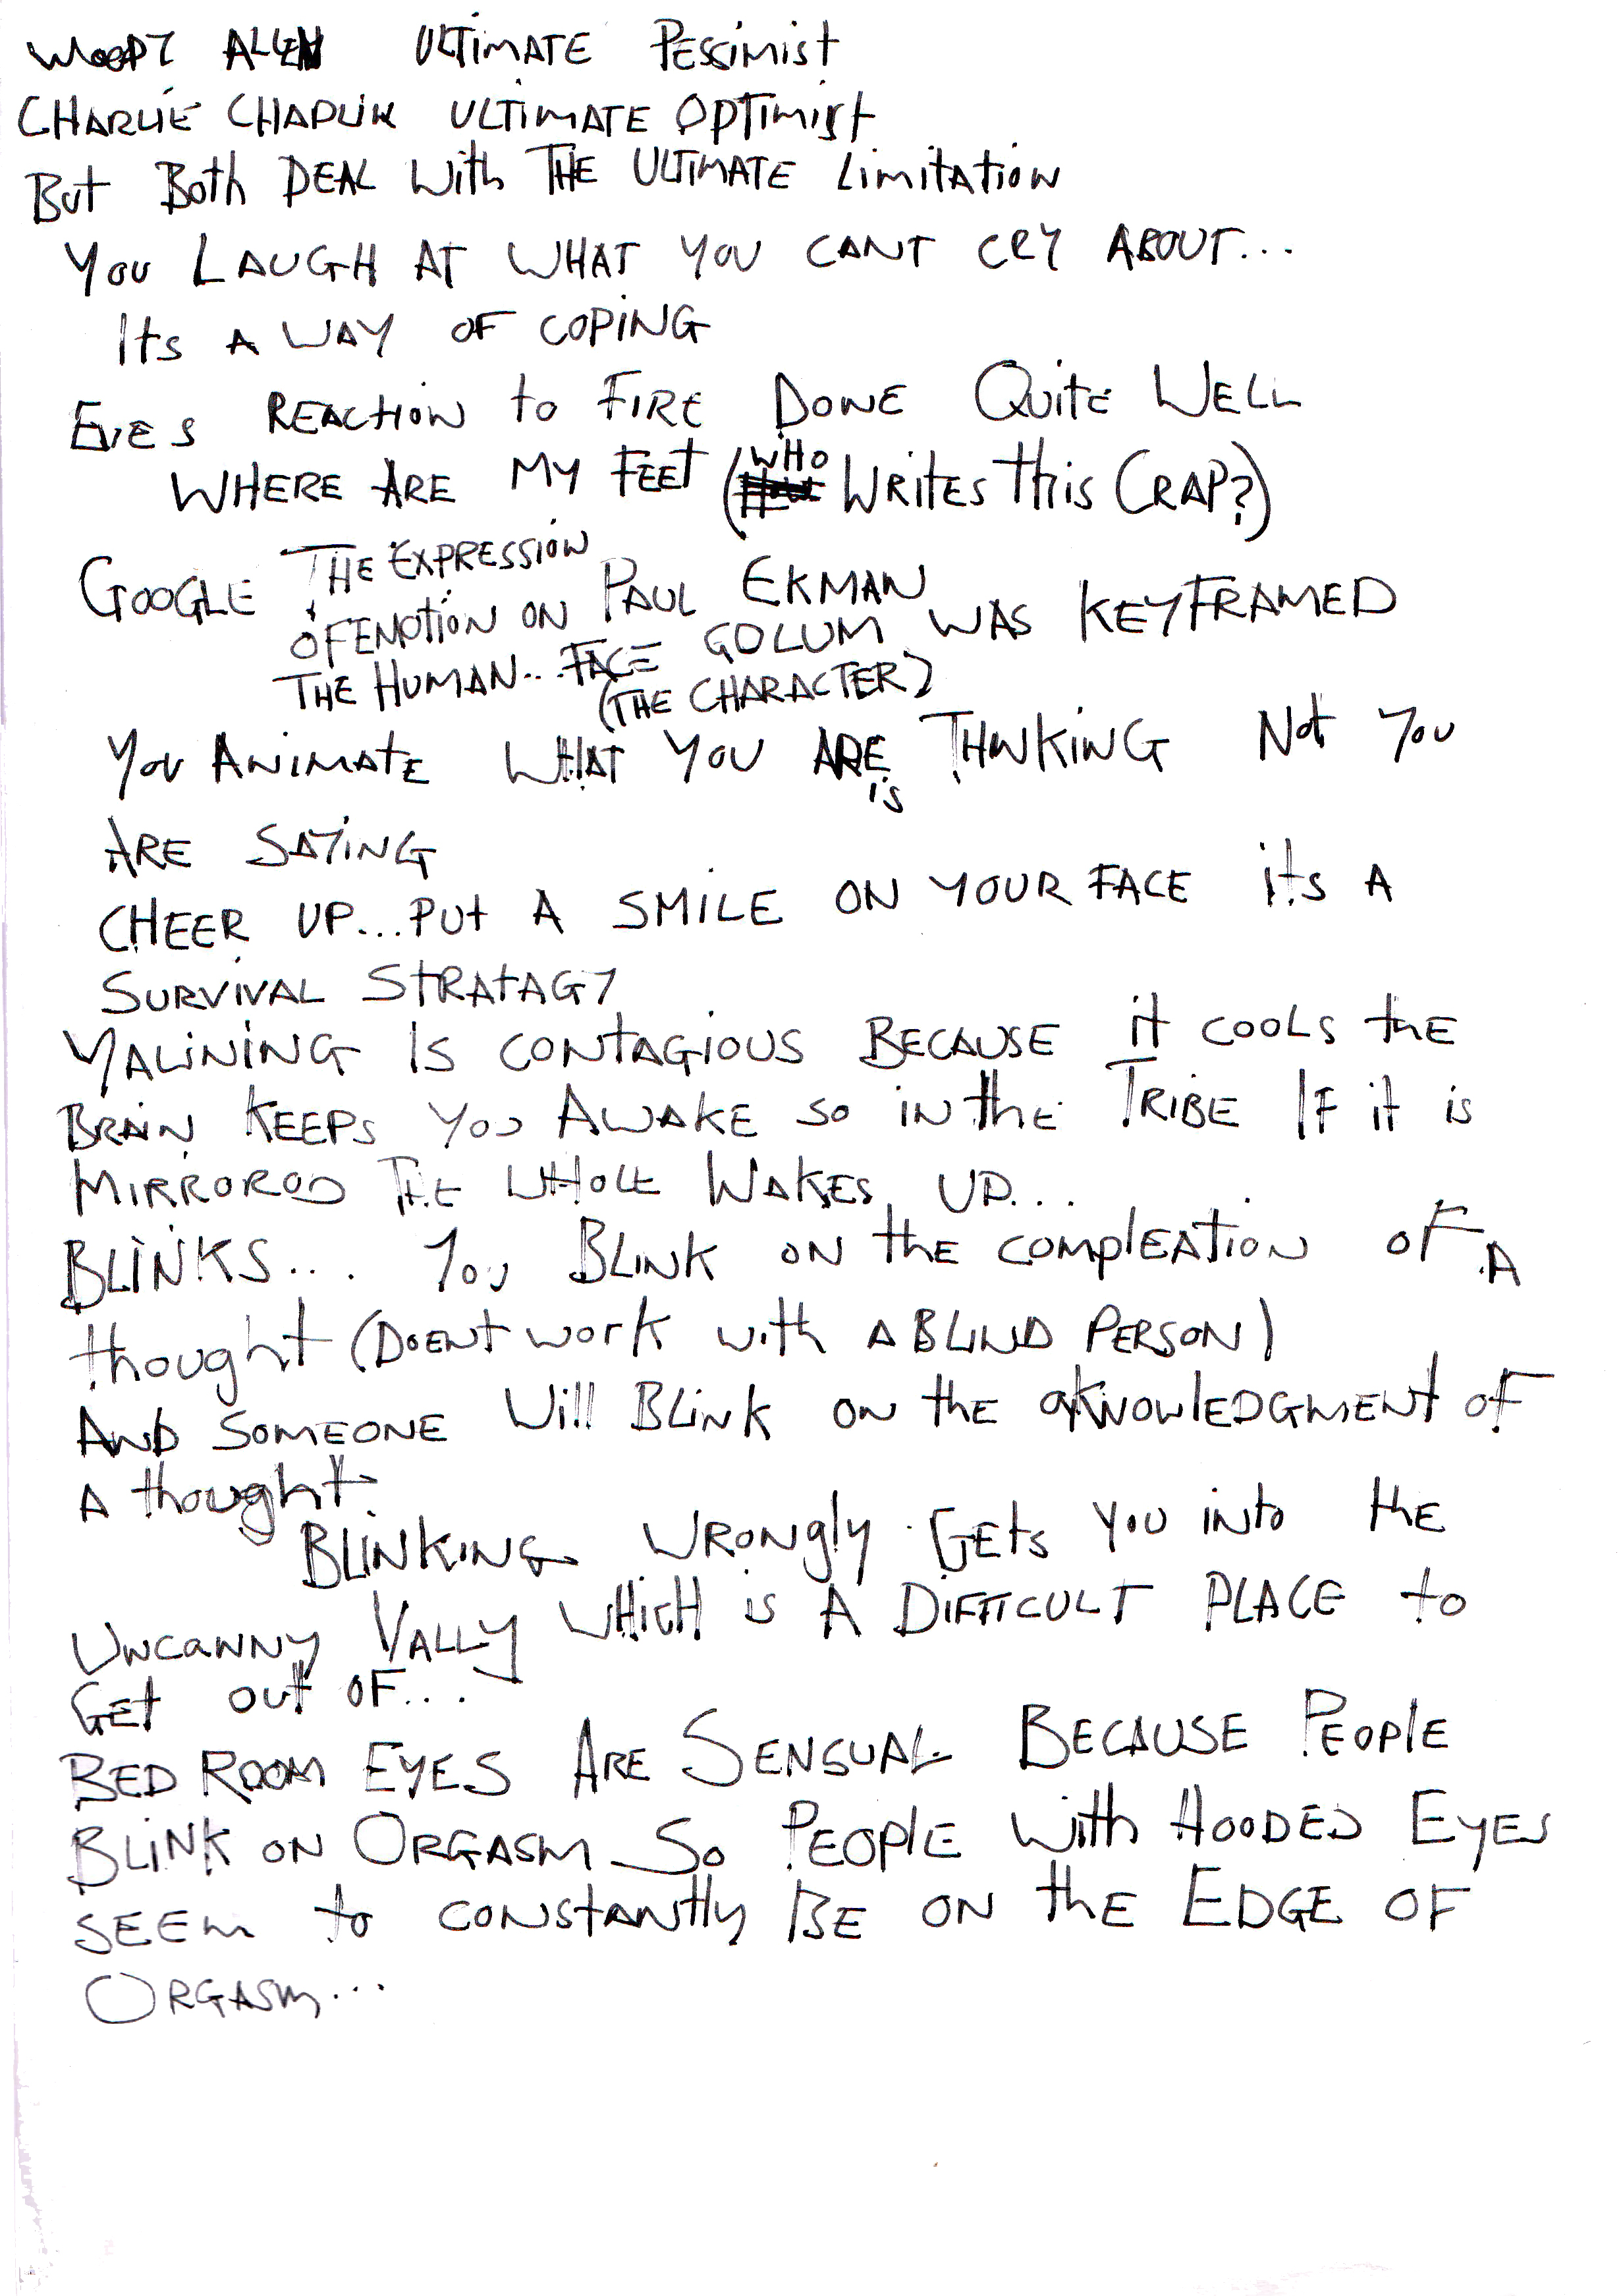 WOODY ALLEN ULTIMATE PESSIMIST
CHARLIE CHAPLIN ULTIMATE OPTIMIST
BUT BOTH DEAL WITH THE ULTIMATE LIMITATION
YOU LAUGH AT WHAT YOU CANT CRY ABOUT...
ITS A WAY OF COPING
EVES REACTION TO FIRE DONE QUITE WELL
WHERE ARE MY FEET (WHO WRITES THIS CRAP?)
GOOGLE THE EXPRESSION
OF EMOTION ON
THE HUMAN... FACE
PAUL EKMAN
GOLUM WAS KEYFRAMED
(THE CHARACTER)
YOU ANIMATE WHAT YOU ARE THINKING NOT YOU
is
ARE SAYING
CHEER UP...PUT A SMILE ON YOUR FACE ITS A
SURVIVAL STRATAGY
YAWNING IS CONTAGIOUS BECAUSE IT COOLS THE
BRAIN KEEPS YOU AWAKE SO IN THE TRIBE IF IT IS
MIRROROD THE WHOLE WAKES UP...
BLINKS... YOU BLINK ON THE COMPLEATION OF A
THOUGHT (DOENT WORK WITH A BLIND PERSON)
AND SOMEONE WILL BLINK ON THE AKNOWLEDGMENT OF
A THOUGHT.
BLINKING WRONGLY GETS YOU INTO THE
UNCANNY VALLY WHICH IS A DIFFICULT PLACE TO
GET OUT OF...
BED ROOM EYES ARE SENSUAL BECAUSE PEOPLE
BLINK ON ORGASM SO PEOPLE WITH HOODED EYES
SEEM TO CONSTANTLY BE ON THE EDGE OF
ORGASM...